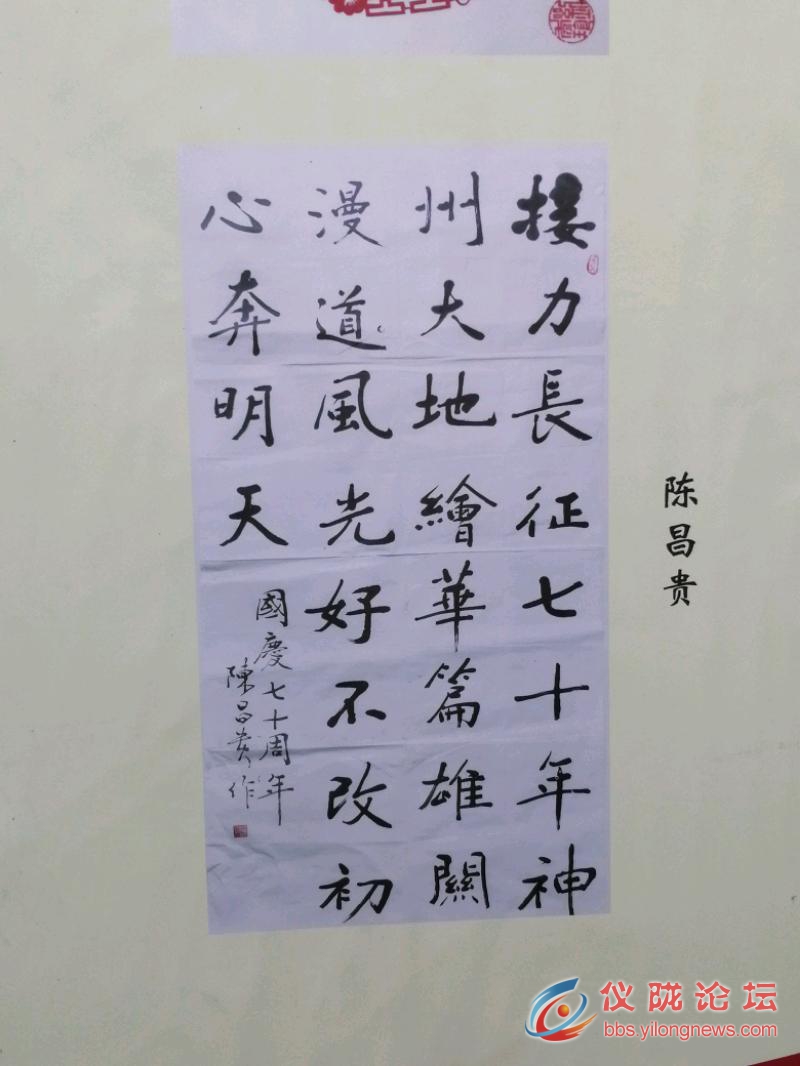 接力長征七十年神
州大地繪華篇雄關
漫道風光好不改初
心奔明天
國慶七十周年
陳昌贵作
陈昌贵
仪陇论坛
bbs.yilongnews.com